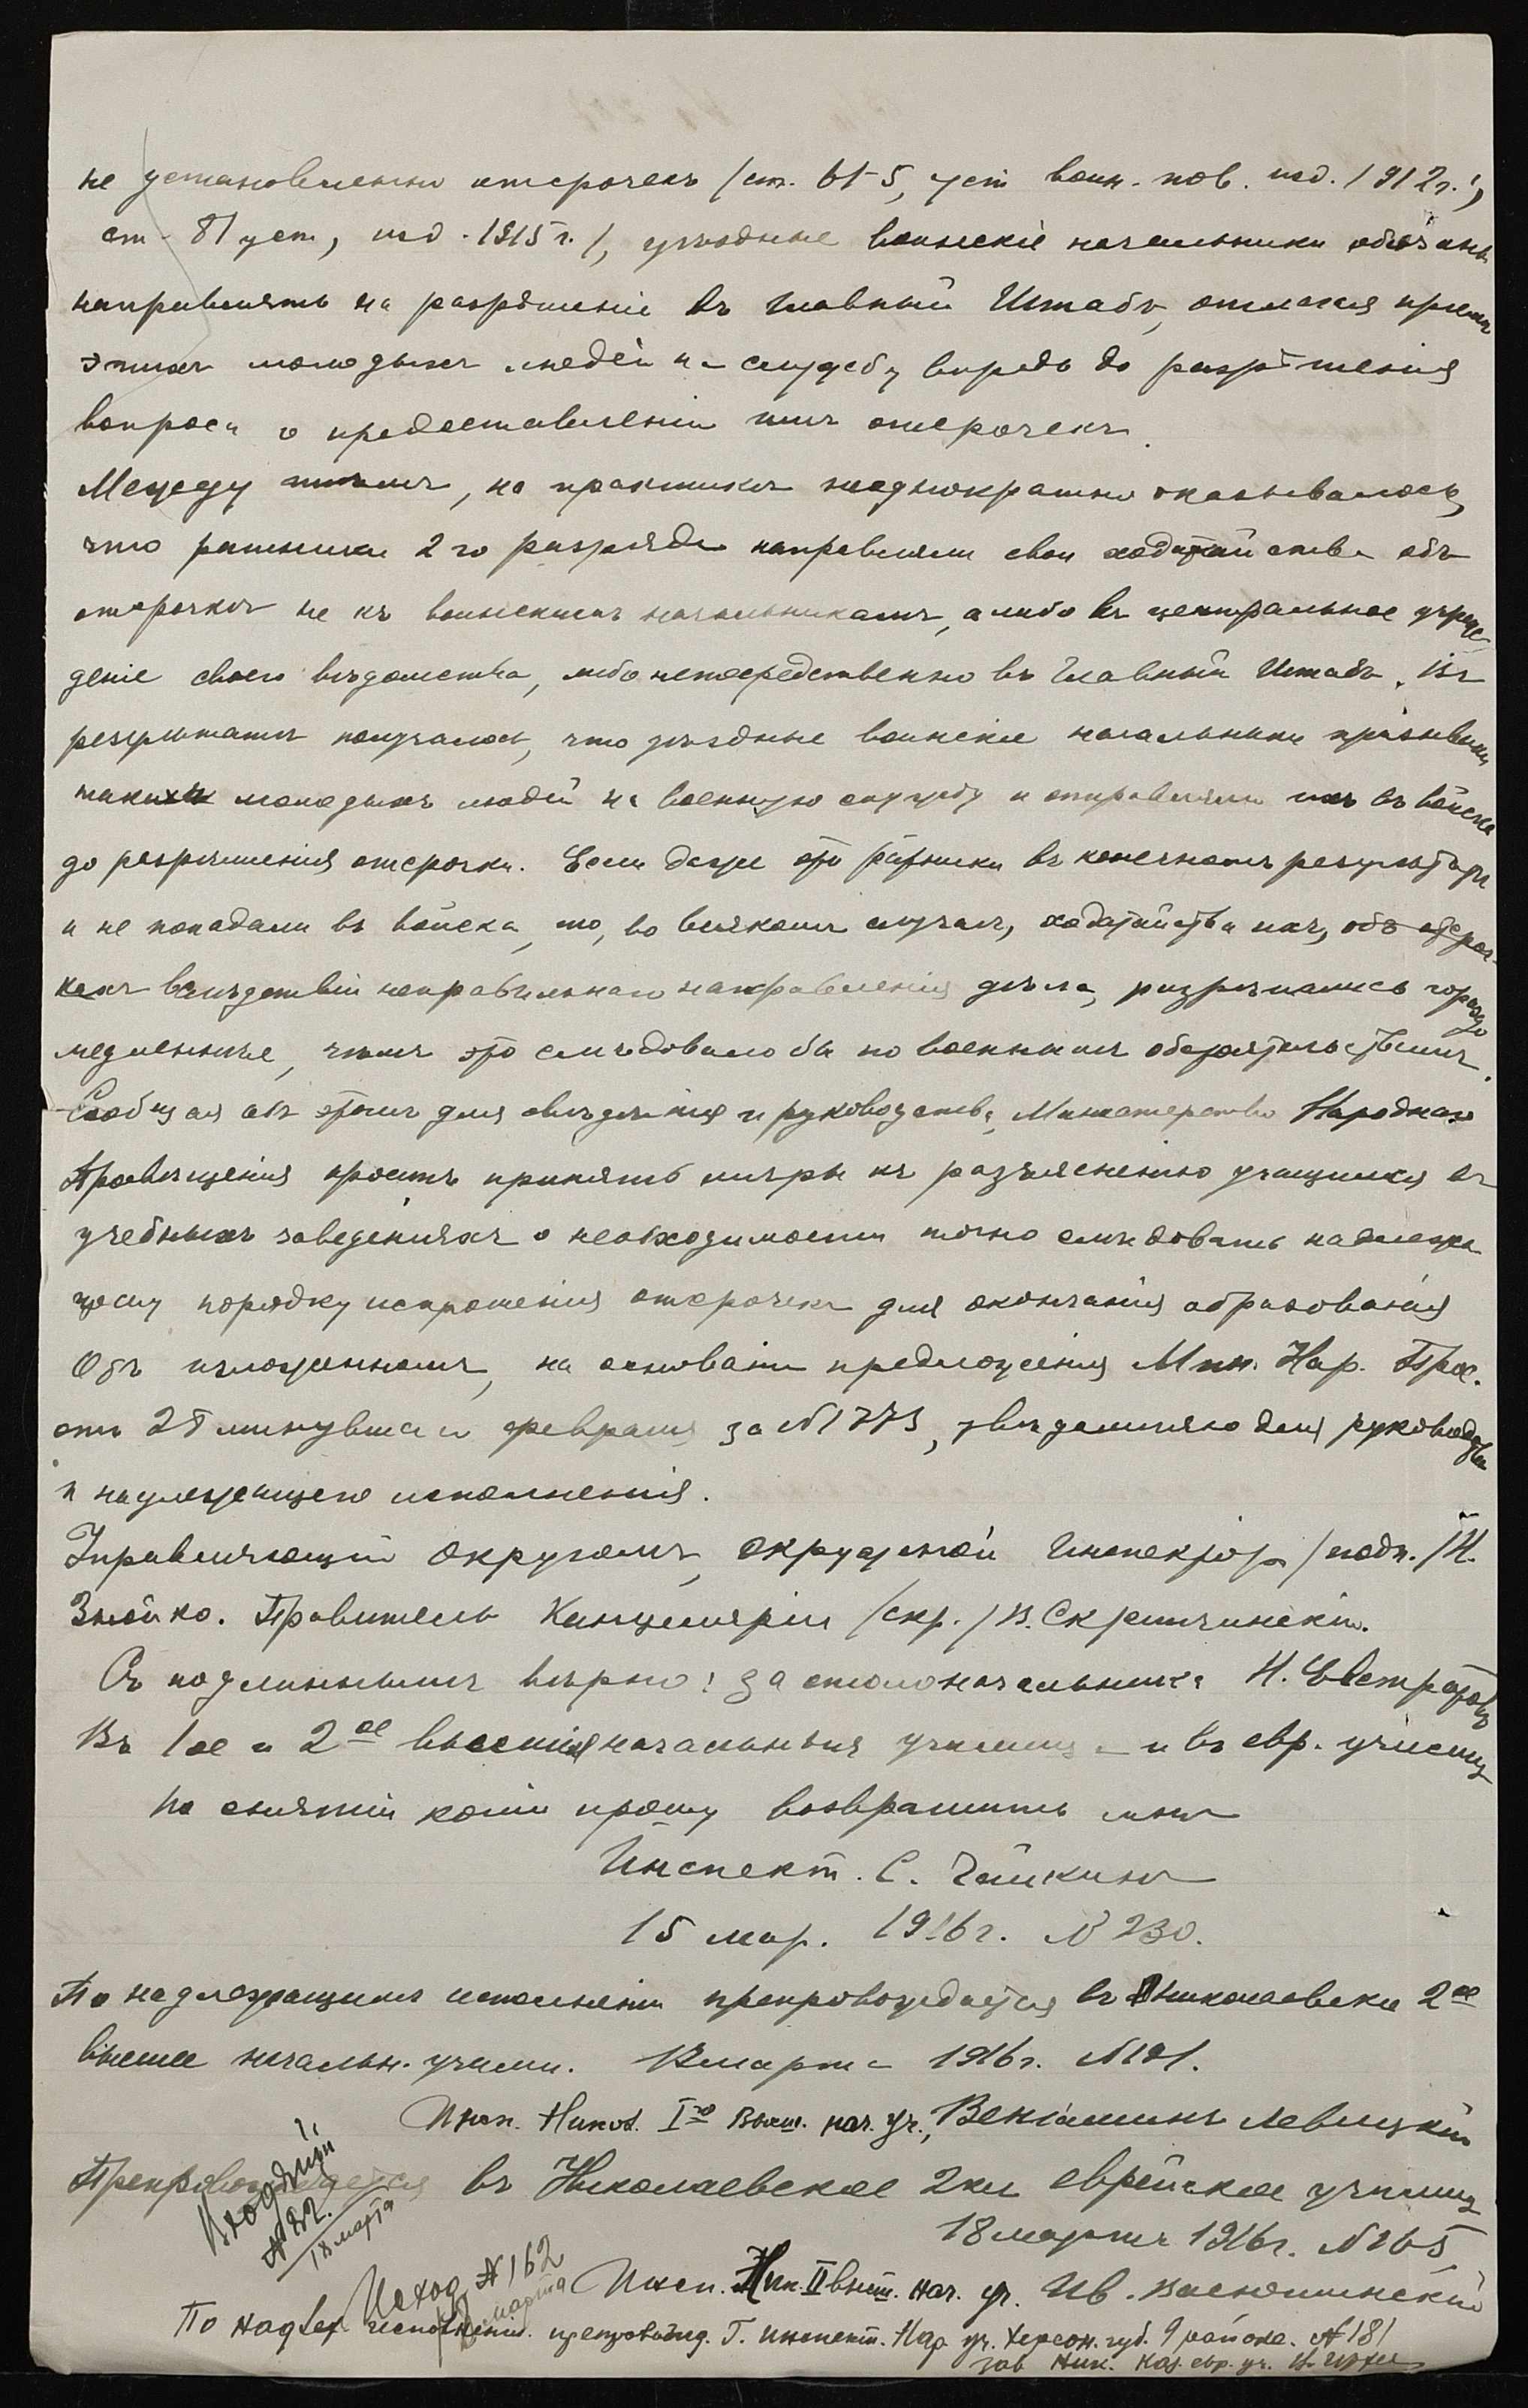 не установлены отсрочекъ /ст. 61-5, уст воин. пов. изд. 1912 г.,
ст. 81 уст, изд. 1915 г./, уѣздные воинскіе начальники обязаны
направлять на разрѣшеніе въ Главный Штабъ, отлагая пріемъ
этихъ молодыхъ людей на службу впредь до разрѣшенія
вопроса о предоставленіи имъ отсрочекъ.
Между тѣмъ, на практикѣ неоднократно оказывалось,
что ратники 2го разряда направляли свои ходатайства объ
отсрочкѣ не къ воинскимъ начальникамъ, а либо въ центральное учреж
деніе своего вѣдомства, либо непосредственно въ Главный Штабъ. Въ
результатѣ получалось, что уѣздные воинскіе начальники призывали
такихъ молодыхъ людей на военную службу и отправляли ихъ въ войска
до разрѣшенія отсрочки. Если даже эти ратники въ конечномъ результатѣ
и не попадали въ войска, то, во всякомъ случаѣ, ходатайства ихъ, объ отсроч-
кахъ вслѣдствіи неправильнаго направленія дѣла, разрѣшались гораздо
медленнѣе, чѣмъ это слѣдовало бы по военнымъ обстоятельствамъ.
Сообщая объ этомъ для свѣдѣнія и руководства, Министерство Народнаго
Просвѣщенія проситъ принять мѣры къ разъясненію учащимся въ
учебныхъ заведеніяхъ о необходимости точно слѣдовать надлежа
щему порядку испрошенія отсрочекъ для окончанія образованія
Объ изложенномъ, на основаніи предложенія Мин. Нар. Прос.
отъ 28 минувшаго февраля за №1773, увѣдомляю для руководства
и надлежащаго исполненія.
Управляющій Округомъ, Окружной Инспекторъ /подп./ И.
Знойко. Правитель Канцеляріи /скр./ В. Скритчинскій.
Съ подлиннымъ вѣрно: за столоначальника Н. Евстратовъ
Въ 1ое и 2ое высшія начальныя училища и въ евр. училищ
По снятіи копіи прошу возвратить мнѣ
Инспект. С. Чайкинъ
15 мар. 1916 г. № 230.
По надлежащимъ исполненіи препровождается въ Николаевское 2ое
высшее начальн. учили. марта 1916 г. №101.
Инсп. Никол. Iго Высш. нач. уч., Веніаминъ Левицкій
Препровождается въ Николаевское 2кл еврейское училищ
18 марта 1916 г. №165
Входящій
№182.
18 марта
Инсп. Ник. II высш. нач. уч. Ив.
Исход. №162
марта
По надлеж исполненіи. препровожд. Г. инспект. Нар. уч. Херсон. губ. 9 района. №181
зав. Ник. каз. евр. уч.